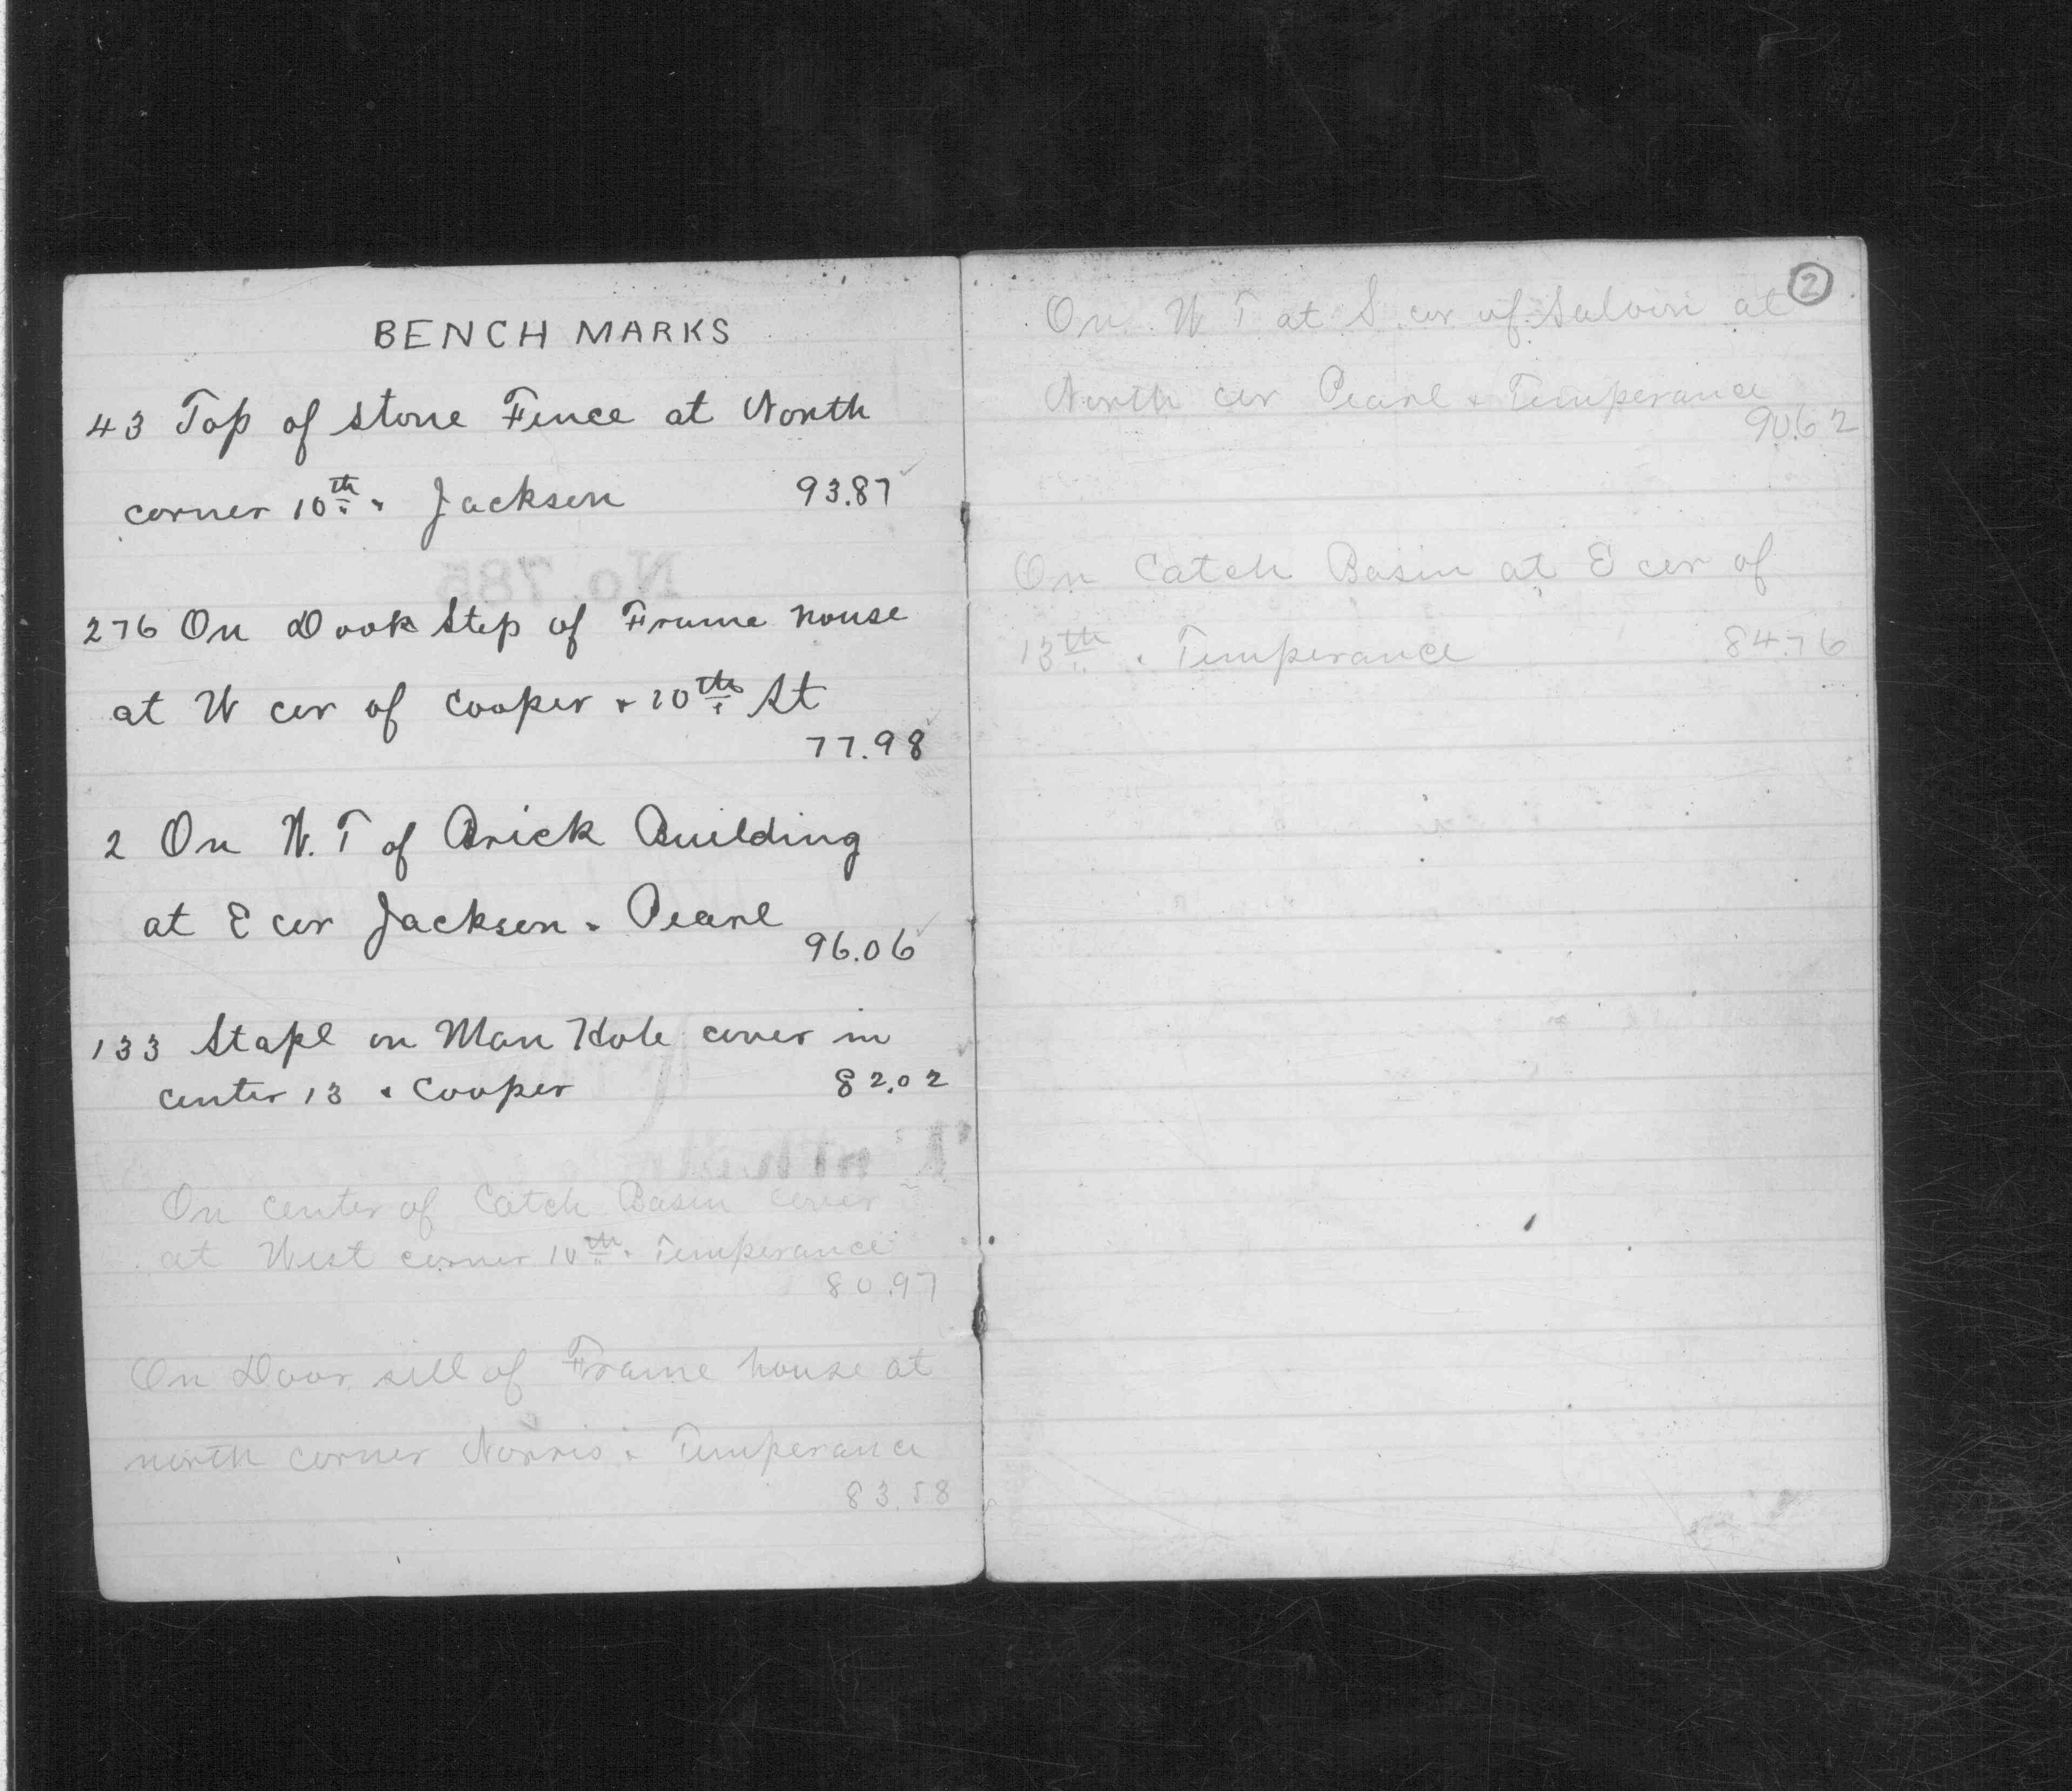 BENCH MARKS
43 Top of stone Fence at North
corner 10th & Jackson 93.87
276 On Dook Step of Frame house
at W cor of Cooper & 10th St
77.98
2 On W.T of Brick Building
at E cor Jackson & Pearl
96.06
133 Stapl on Man Hole cover in
center 13 & Cooper 82.02
On center of Catch Basin cover
at West corner 10th & Temperance
80.97
On Door sill of Frame house at
north corner Norris & Temperance
83.58
2
On W T at S cor of Saloon at
North cor Pearl & Temperance
90.62
On Catch Basin at E cor of
13th & Temperance 84.76
No. 785